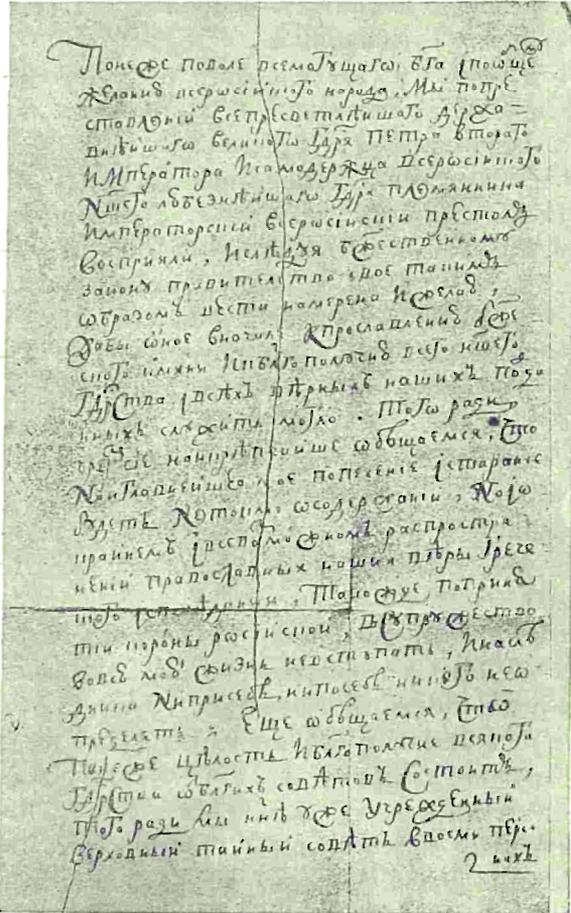 Понеже поволе всемогущаго бга ιпообще
желанию всеросиѝского народа, мы попре
ставлениѝ всепресветлѣишаго держа-
внѣишаго великого гдря Петра Втораго
императора исамодержца всеросиѝского
ншего любезнѣишаго гдря племянника
императорскиѝ всеросиѝскиѝ престолъ
восприяли, ислѣдуя бжественному
закону правителство свое такимъ
образомъ вести намерена ижелаю,
дабы оное вначале кпрославлению бже
ского имяни иблгополучию всего ншего
гдрства ιвсѣхъ вѣрныхъ нашихъ подда
нныхъ служить могло. Того ради,
чрез сие наикрѣпчаише обещаемся, что
наиглавнеишее мое попечение ιстарание
будетъ нетокмо осодержаниι, ноιо
краинемъ ιвсевозможномъ распростра
нениι православныя нашия вѣры грече
ского ιсповѣдания, такожде поприня
тиι короны росиѝской, всупружество
вовсю мою жизнь невступать, инаслѣ
дника ниприсебѣ, нипосебѣ никого нео
пределять. Еще обещаемся, что
понеже целость иблгополучие всякого
гдрства отблгихъ совѣтовъ состоитъ,
того ради мы ннѣ уже учрежденныѝ
верховныѝ таѝныѝ совѣтъ ввосми персо
нахъ